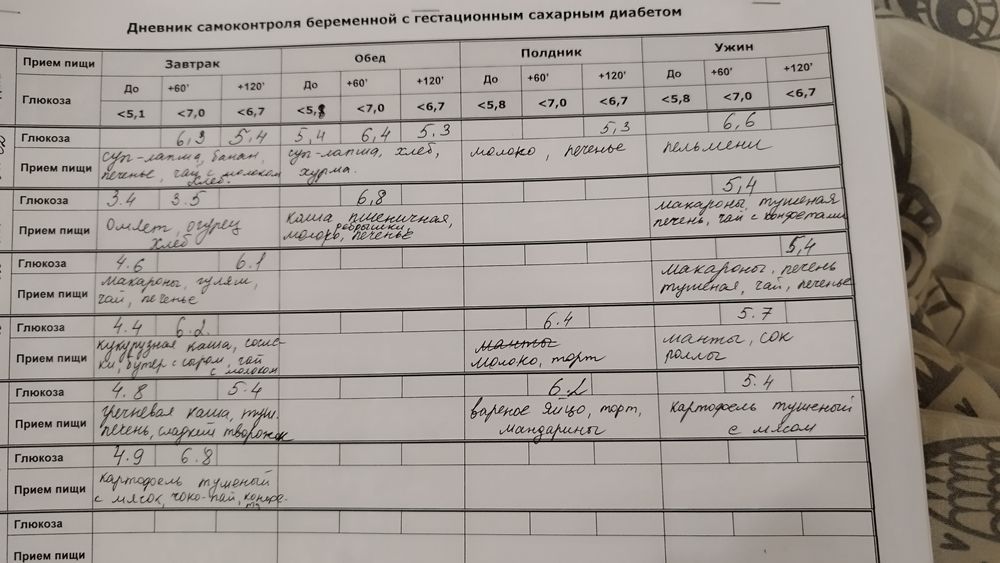 Дневник самоконтроля беременной с гестационным сахарным диабетом
Прием пищи Завтрак Обед Полдник Ужин
Глюкоза До +60' +120' До +60' +120' До +60' +120' До +60' +120'
<5,1 <7,0 <6,7 <5,8 <7,0 <6,7 <5,8 <7,0 <6,7 <5,8 <7,0 <6,7
Глюкоза 6,3 5,4 5,4 6,4 5,3 5,3 6,6
Прием пищи суп-лапша, банан, суп-лапша, хлеб, молоко, печенье пельмени
печенье, чай с молоком хурма.
хлеб.
Глюкоза 3.4 3.5 6,8 5,4
Прием пищи Омлет, огурец каша пшеничная, макароны, тушеная
хлеб ребрышки, печень, чай с конфетами
молоко, печенье
Глюкоза 4.6 6.1 5,4
Прием пищи макароны, гуляш, макароны, печень
чай, печенье тушеная, чай, печенье
Глюкоза 4.4 6.2 6.4 5.7
Прием пищи кукурузная каша, соси- манты манты, сок
ки, бутер с сыром, чай молоко, торт роллы
с молоком
Глюкоза 4.8 5.4 6.2 5.4
Прием пищи гречневая каша, туш. вареное яйцо, торт, картофель тушеный
печень, сладкий творожок мандарины с мясом
Глюкоза 4.9 6.8
Прием пищи картофель тушеный
с мясом, чоко-пай, конфе-
ты
Глюкоза
Прием пищи